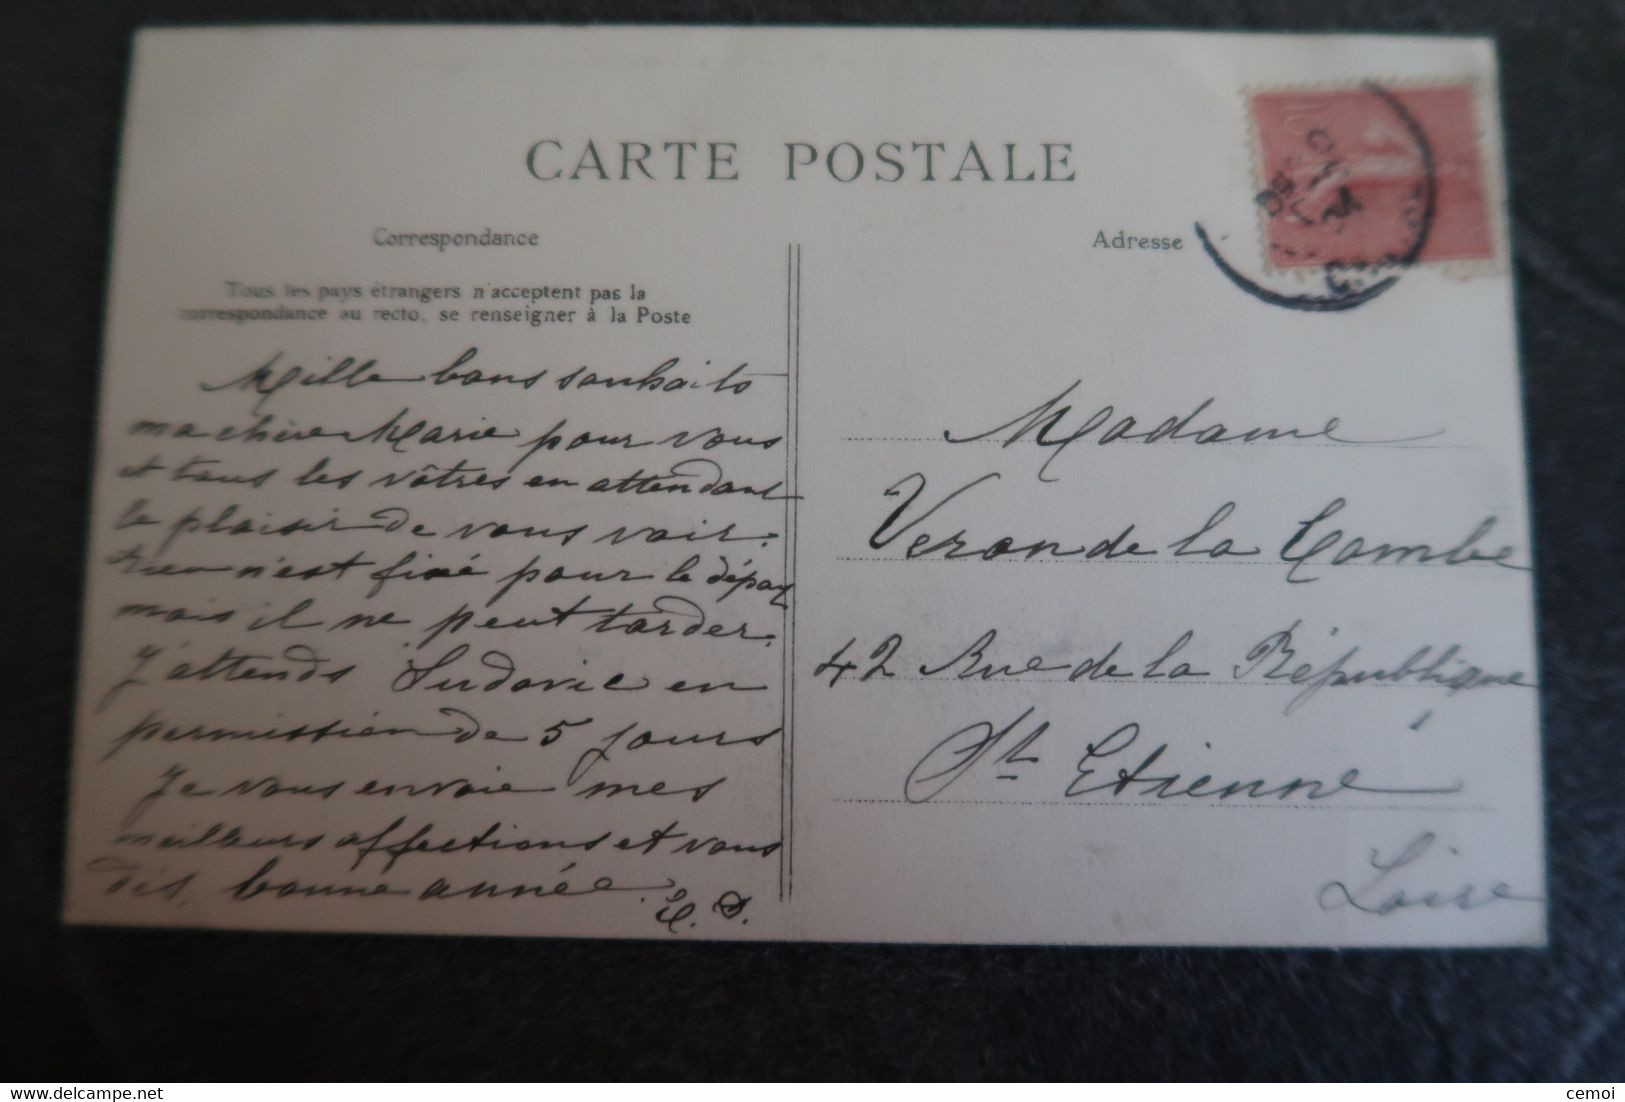 CARTE POSTALE
Correspondance
Tous les pays étrangers n'acceptent pas la
correspondance au recto, se renseigner à la Poste
Mille bons souhaits
ma chère Marie pour vous
et tous les vôtres en attendant
le plaisir de vous voir.
rien n'est fixé pour le départ
mais il ne peut tarder.
J'attends Ludovic en
permission de 5 jours
Je vous envoie mes
meilleurs affections et vous
dis bonne année.
Adresse
10
Madame
Veron de la Combe
42 Rue de la République
St Etienne
Loire
cemoi